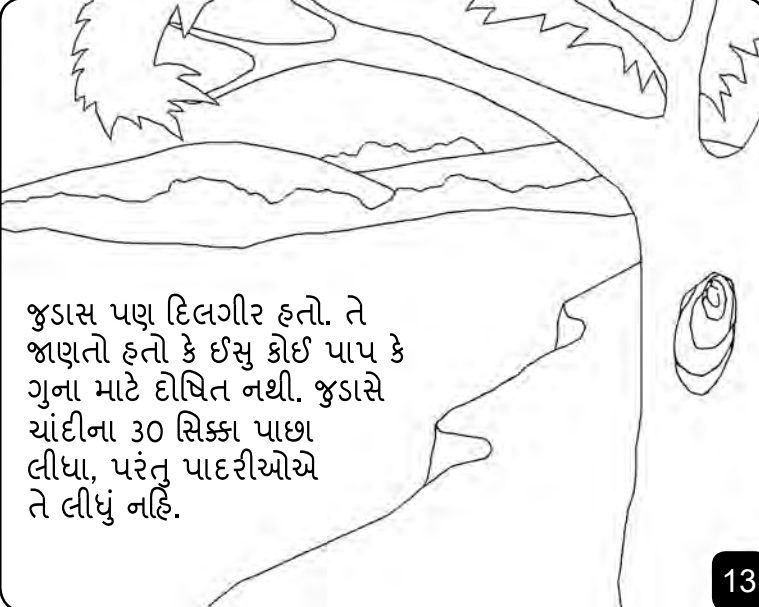 જુડાસ પણ દિલગીર હતો. તે
જાણતો હતો કે ઈસુ કોઈ પાપ કે
ગુના માટે દોષિત નથી. જુડાસે
ચાંદીના ૩૦ સિક્કા પાછા
લીધા, પરંતુ પાદરીઓએ
તે લીધું નહિ.
13